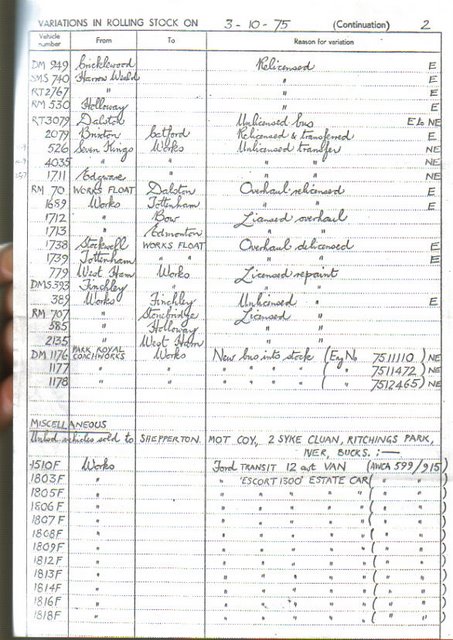 VARIATIONS IN ROLLING STOCK ON 3-10-75 (Continuation) 2
Vehicle number From To Reason for variation
DM 949 Cricklewood Relicensed E
SMS 740 Harrow Weald " E
RT2767 " " E
RM 530 Holloway " E
RT3079 Dalston Unlicensed bus E to NE
2079 Brixton Catford Relicensed & transferred E
526 Seven Kings Works Unlicensed transfer NE
4035 " " " " NE
1711 Edgware " " " NE
RM 70 WORKS FLOAT Dalston Overhaul relicensed E
1659 Works Tottenham " " E
1712 " Bow Licensed overhaul
1713 " Edmonton " "
1738 Stockwell WORKS FLOAT Overhaul delicensed E
1739 Tottenham " " " " E
779 West Ham Works Licensed repaint
DMS 393 Finchley " " "
389 Works Finchley Unlicensed " E
RM 707 " Stonebridge Licensed "
585 " Holloway " "
2135 " West Ham " "
DM 1176 PARK ROYAL COACHWORKS Works New bus into stock (Eng No 7511110) NE
1177 " " " " " " ( " 7511472) NE
1178 " " " " " " ( " 7512465) NE
MISCELLANEOUS
vehicles sold to SHEPPERTON MOT COY, 2 SYKE CLUAN, RITCHINGS PARK,
IVER, BUCKS. :—
1510F Works Ford TRANSIT 12 cwt VAN (AWCA 599/915)
1803F " " 'ESCORT 1300' ESTATE CAR ( " " )
1805F " " " " " ( " " )
1806F " " " " " ( " " )
1807F " " " " " ( " " )
1808F " " " " " ( " " )
1809F " " " " " ( " " )
1812F " " " " " ( " " )
1813F " " " " " ( " " )
1814F " " " " " ( " " )
1816F " " " " " ( " " )
1818F " " " " " ( " " )